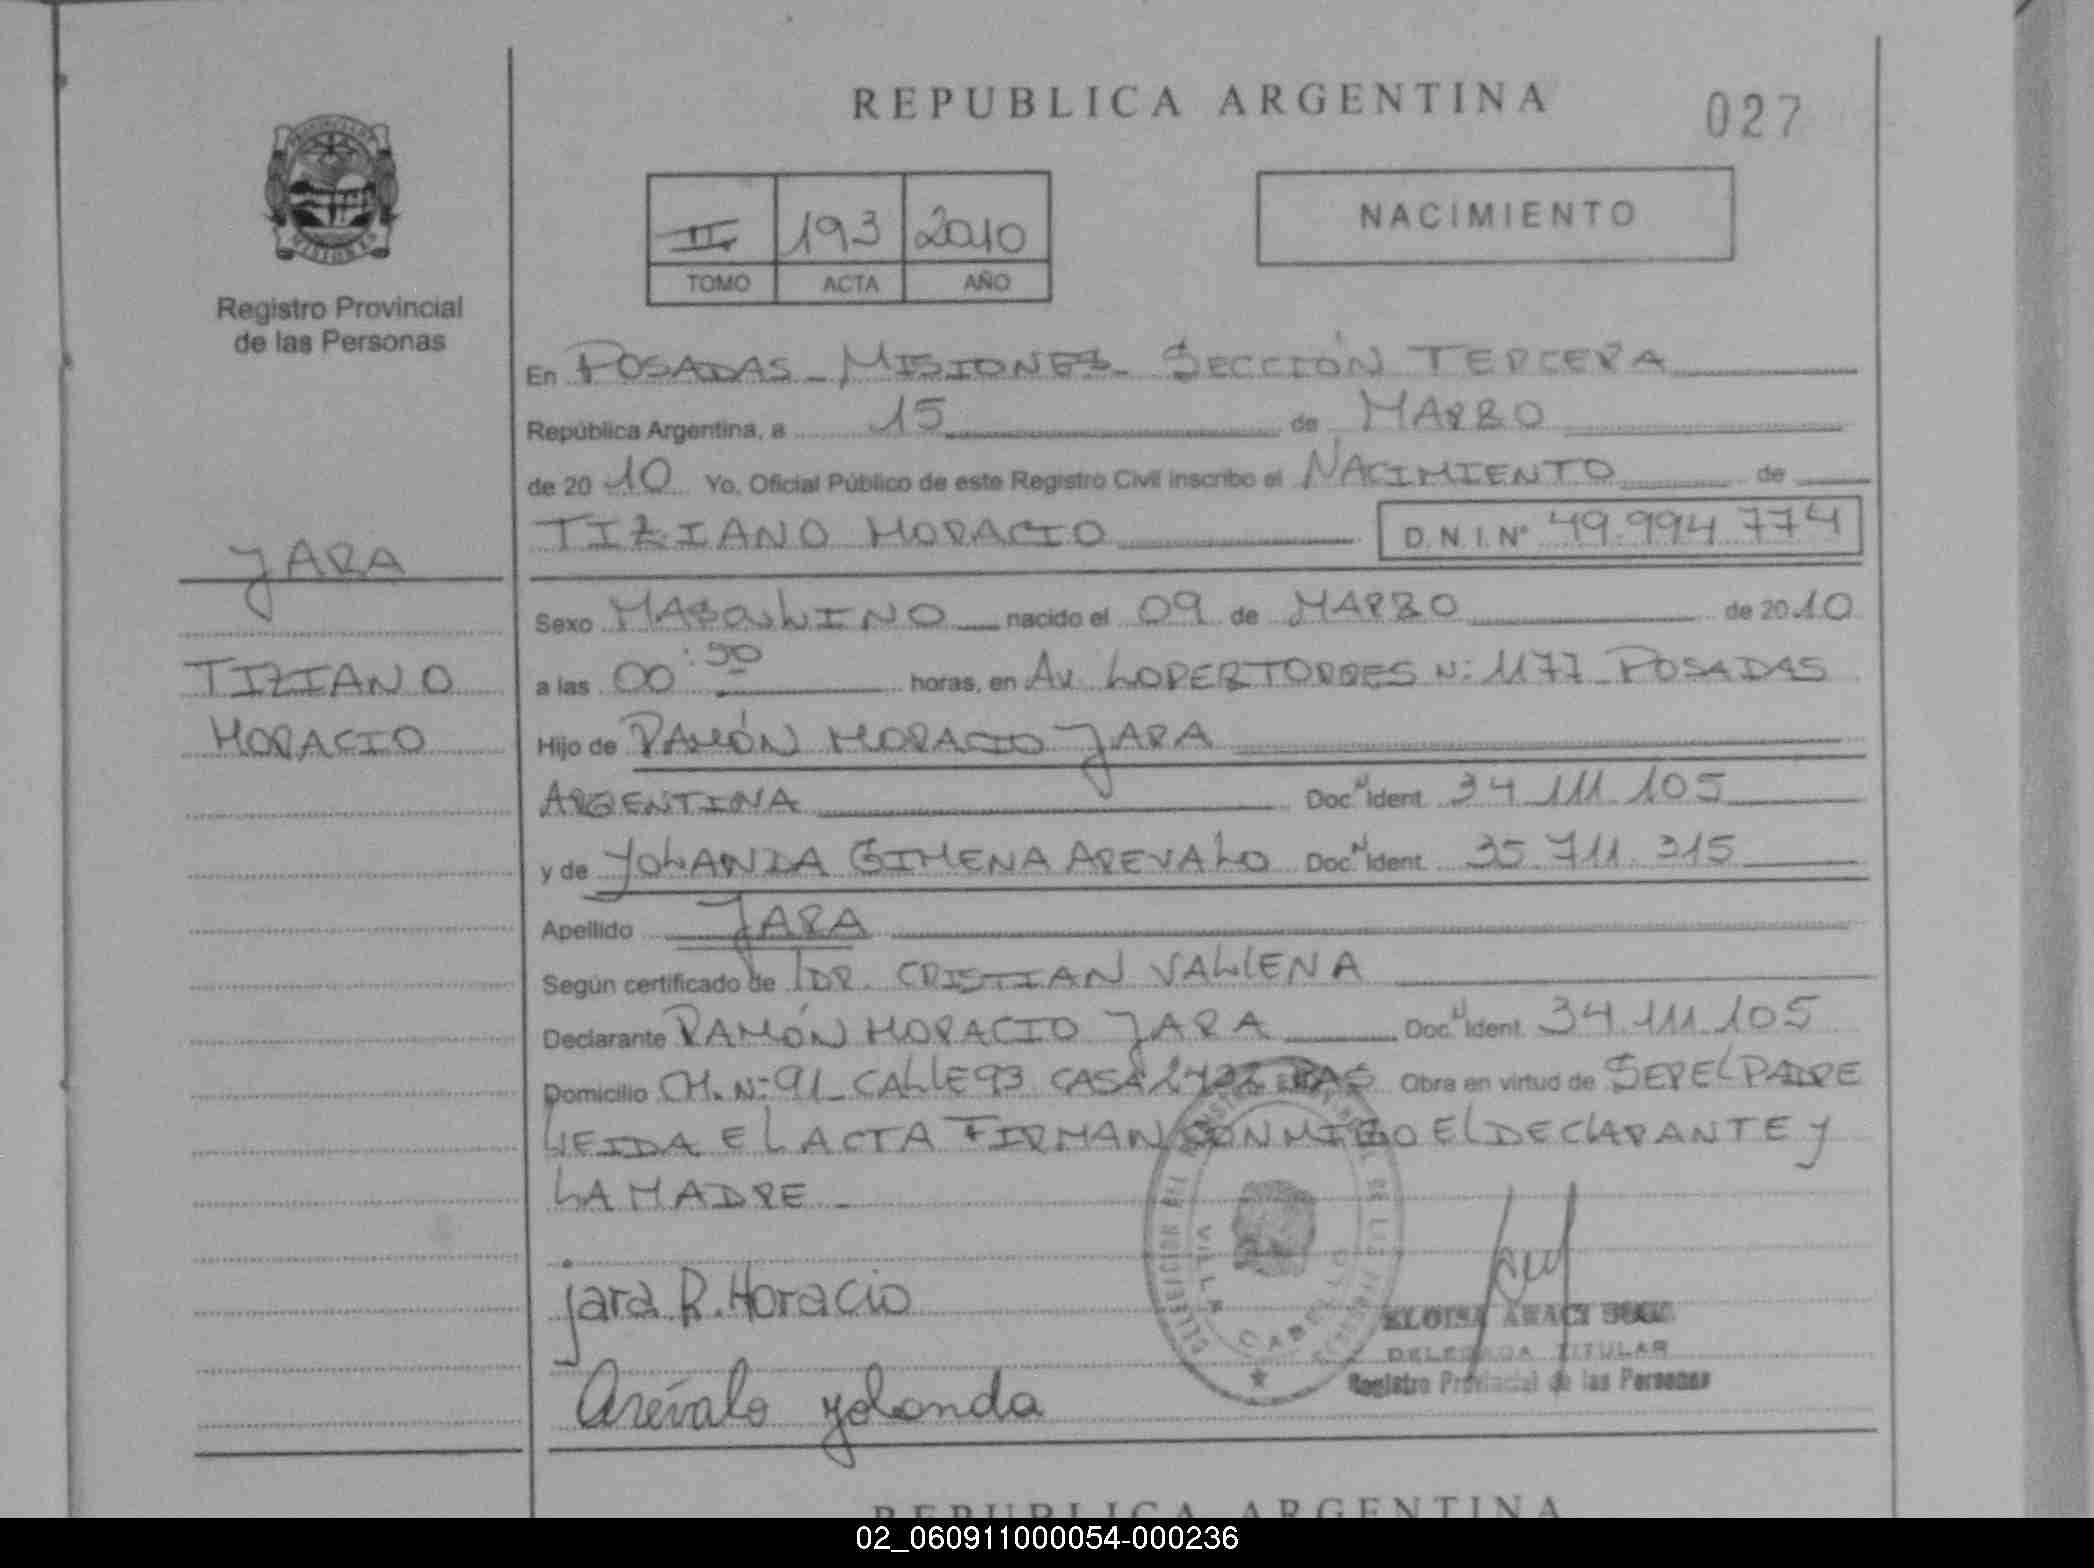 REPUBLICA ARGENTINA
027
II 193 2010
TOMO ACTA AÑO
NACIMIENTO
Registro Provincial
de las Personas
En POSADAS - MISIONES - SECCIÓN TERCERA
República Argentina, a 15 de MARZO
de 2010 Yo, Oficial Público de este Registro Civil inscribo el NACIMIENTO de
TIZIANO HORACIO D.N.I.Nº 49.994.774
JARA
Sexo MASCULINO nacido el 09 de MARZO de 2010
TIZIANO
a las 00:50 horas, en Av. LOPEZ TORRES Nº: 1177 - POSADAS
HORACIO
Hijo de RAMÓN HORACIO JARA
ARGENTINA Doc. Ident. 34.111.105
y de YOLANDA GIMENA AREVALO Doc. Ident. 35.711.315
Apellido JARA
Según certificado de DR. CRISTIAN VALLENA
Declarante RAMÓN HORACIO JARA Doc. Ident. 34.111.105
Domicilio CH. Nº: 91 - CALLE 93 CASA Obra en virtud de SER EL PADRE
LEIDA EL ACTA FIRMAN CONMIGO EL DECLARANTE Y
LA MADRE -
jara R. Horacio
Arévalo yolanda
VILLA CABELLO
ELOISA ARACI
DELEGADA TITULAR
Registro Provincial de las Personas
REPUBLICA ARGENTINA
02_060911000054-000236